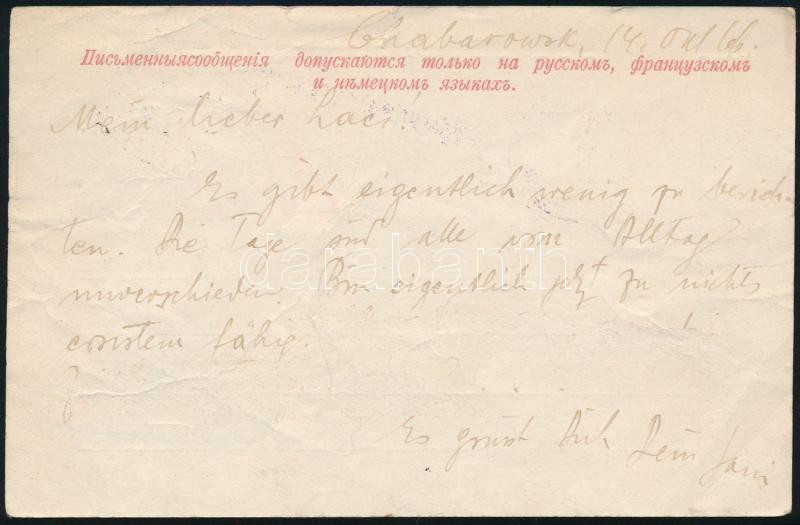 Chabarowsk, 14. Okt 16.
Письменныясообщенія допускаются только на русскомъ, французскомъ
и нѣмецкомъ языкахъ.
Mein lieber Laci!
Es gibt eigentlich wenig zu berich-
ten. Die Tage sind alle vom Alltag
unverschieden. Bin eigentlich jetzt zu nichts
ernstem fähig.
darabanth
Es grüsst Dich Dein Jani